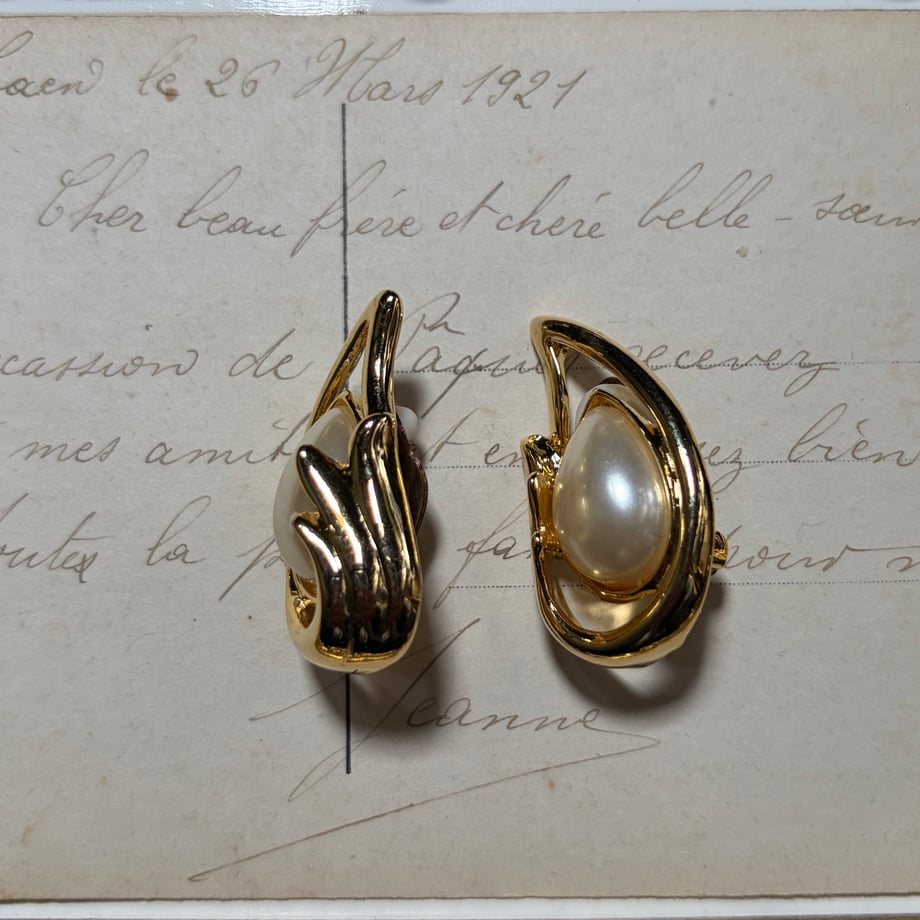 Caen le 26 Mars 1921
Cher beau frére et chére belle - sœur
occassion de Paques recevez
mes amitiés et en bien
toutes la pour
Jeanne